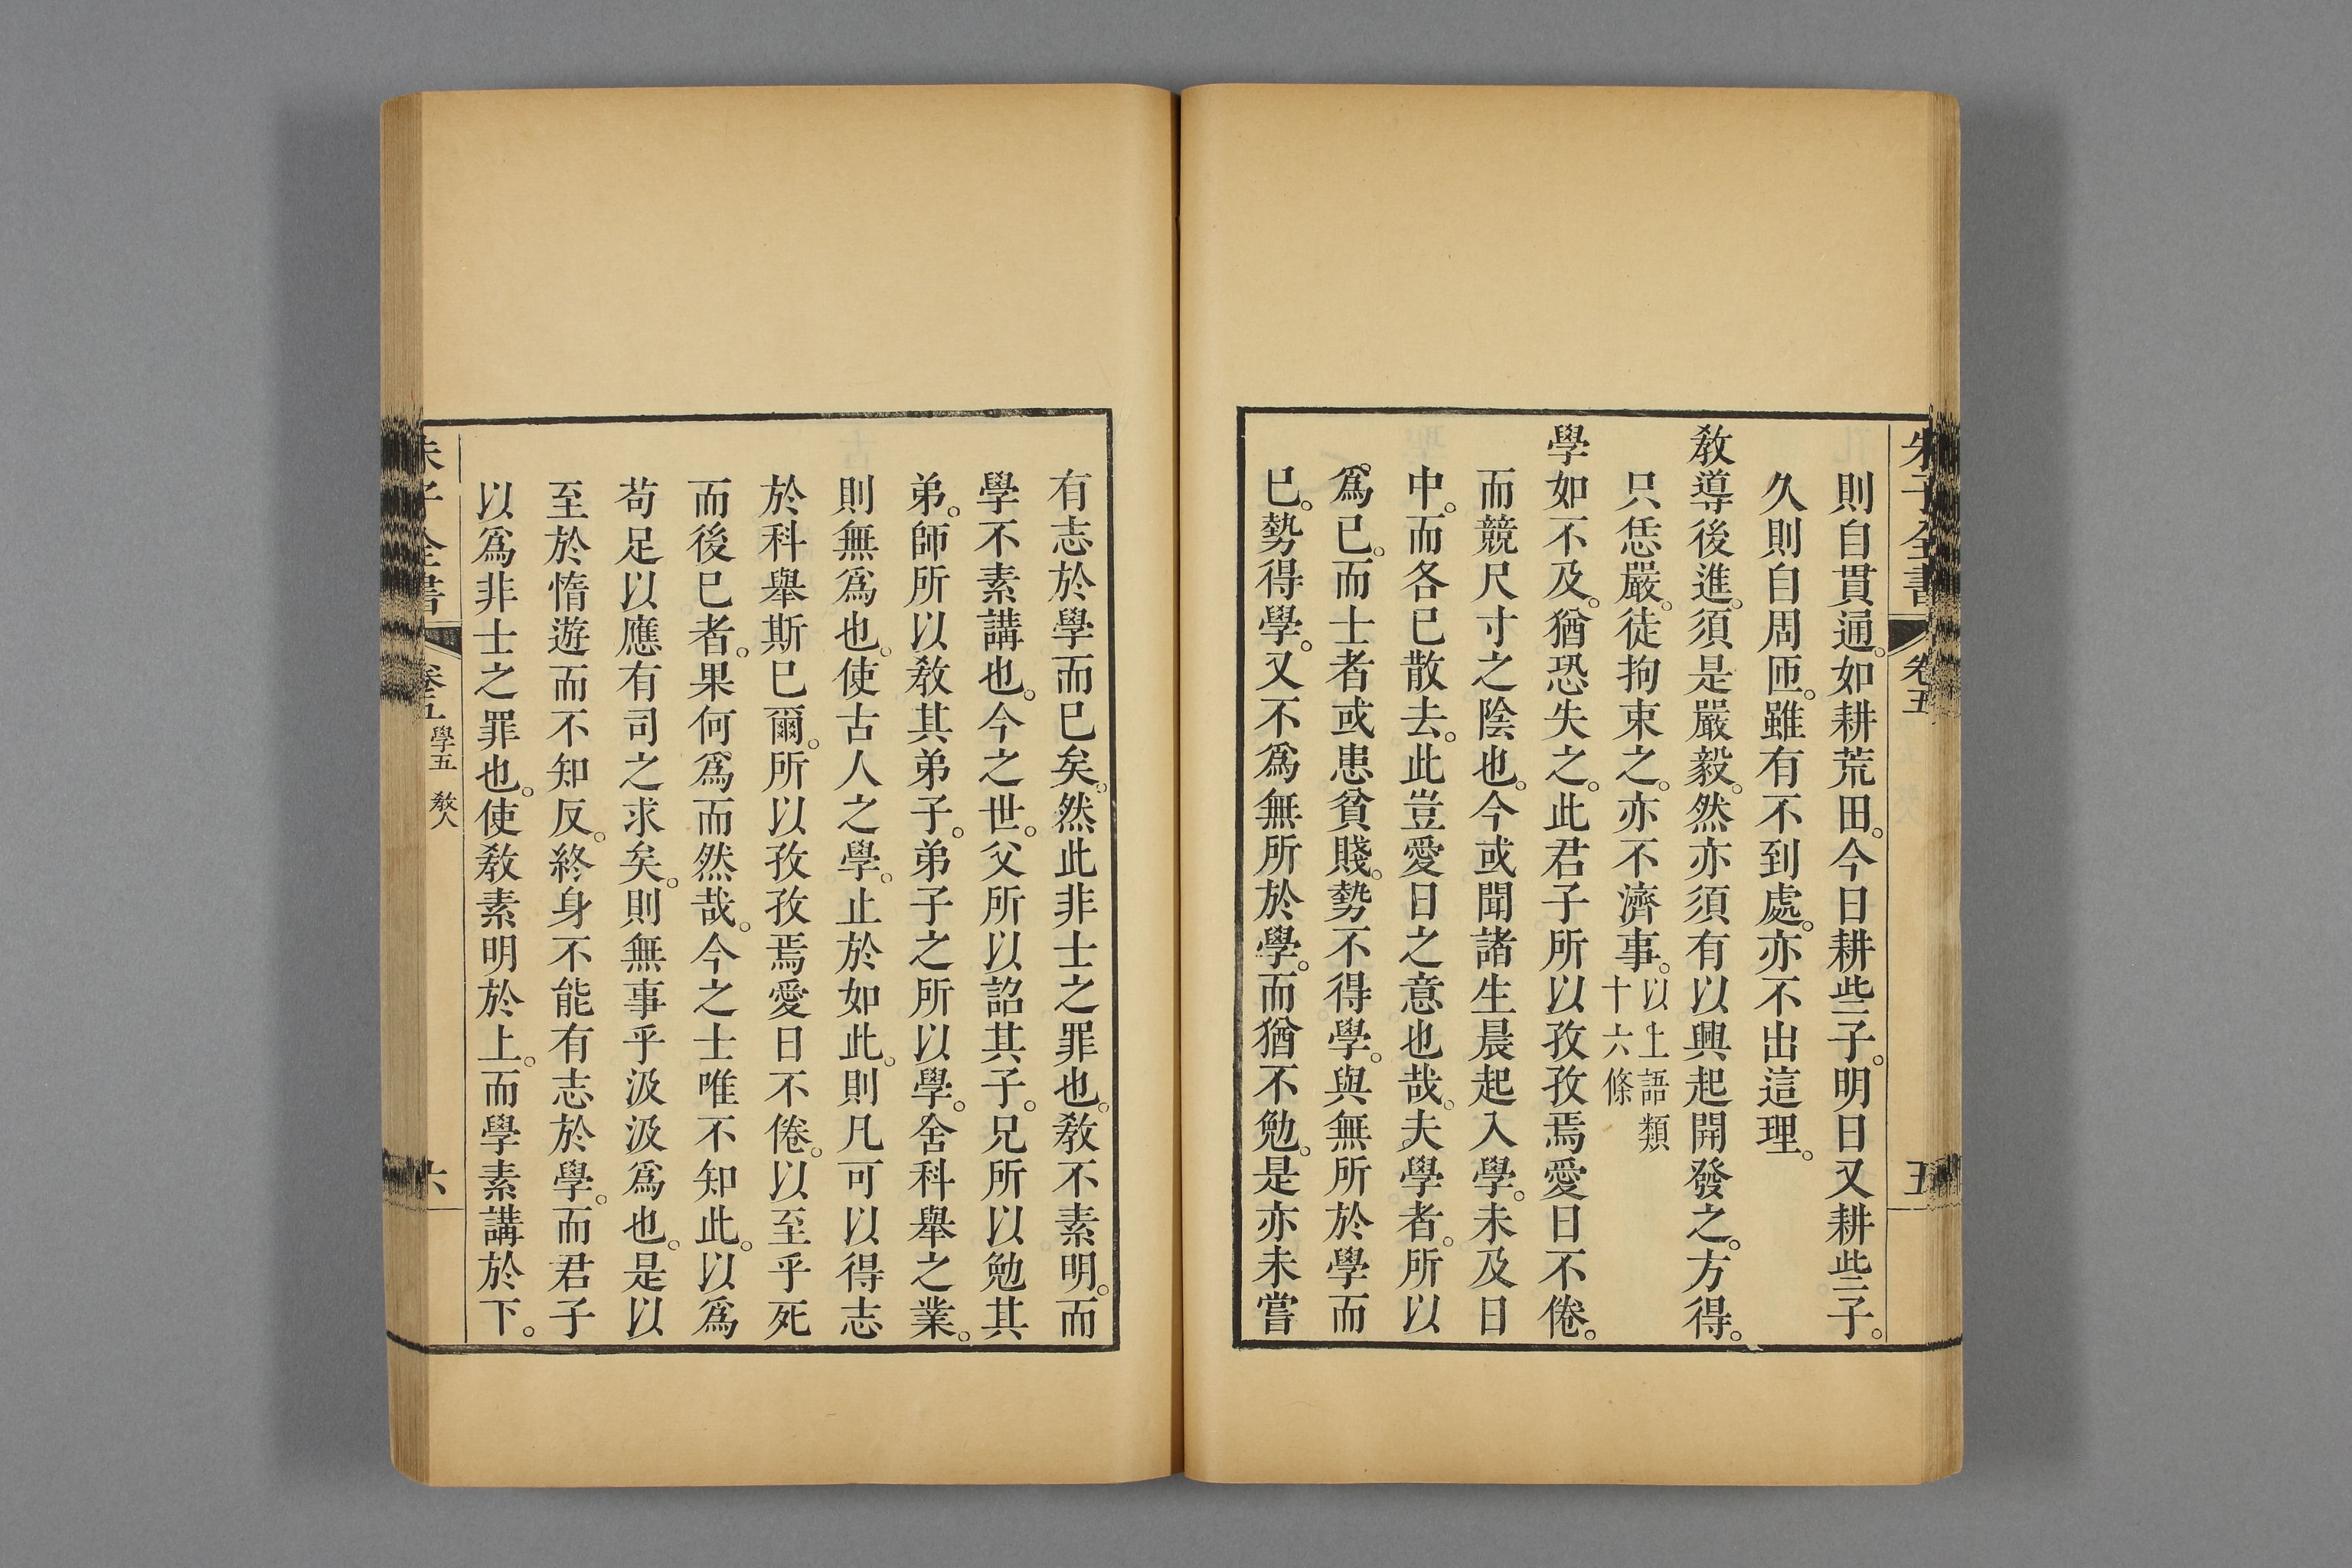 朱子全書 卷五 五
則自貫通。如耕荒田。今日耕些子。明日又耕些子。
久則自周匝。雖有不到處。亦不出這理。
敎導後進。須是嚴毅。然亦須有以興起開發之。方得。
只恁嚴。徒拘束之。亦不濟事。以上語類
十六條
學如不及。猶恐失之。此君子所以孜孜焉愛日不倦。
而競尺寸之陰也。今或聞諸生晨起入學。未及日
中。而各已散去。此豈愛日之意也哉。夫學者。所以
爲己。而士者或患貧賤。勢不得學。與無所於學而
已。勢得學。又不爲無所於學。而猶不勉。是亦未嘗
有志於學而已矣。然此非士之罪也。敎不素明。而
學不素講也。今之世。父所以詔其子。兄所以勉其
弟。師所以敎其弟子。弟子之所以學。舍科舉之業。
則無爲也。使古人之學。止於如此。則凡可以得志
於科舉斯已爾。所以孜孜焉愛日不倦。以至乎死
而後已者。果何爲而然哉。今之士唯不知此。以爲
苟足以應有司之求矣。則無事乎汲汲爲也。是以
至於惰遊而不知反。終身不能有志於學。而君子
以爲非士之罪也。使敎素明於上。而學素講於下。
朱子全書 卷五 學五 敎人 六